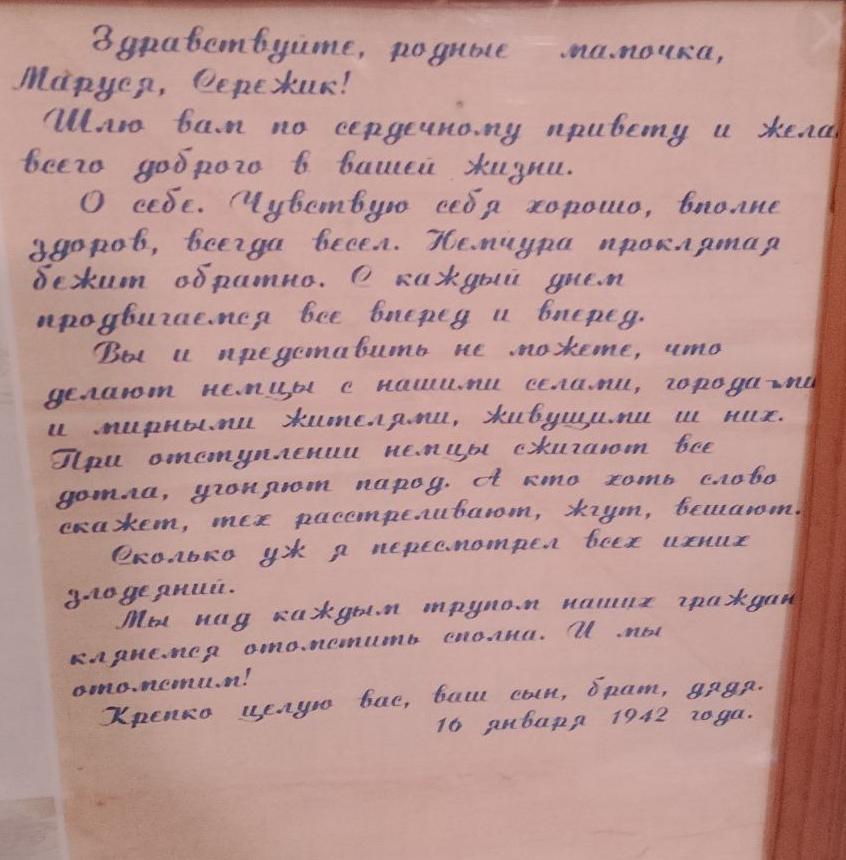 Здравствуйте, родные мамочка,
Маруся, Сережик!
Шлю вам по сердечному привету и жела
всего доброго в вашей жизни.
О себе. Чувствую себя хорошо, вполне
здоров, всегда весел. Немчура проклятая
бежит обратно. С каждый днем
продвигаемся все вперед и вперед.
Вы и представить не можете, что
делают немцы с нашими селами, города-ми
и мирными жителями, живущими ш них.
При отступлении немцы сжигают все
дотла, угоняют парод. А кто хоть слово
скажет, тех расстреливают, жгут, вешают.
Сколько уж я пересмотрел всех ихних
злодеяний.
Мы над каждым трупом наших граждан
клянемся отомстить сполна. И мы
отомстим!
Крепко целую вас, ваш сын, брат, дядя.
16 января 1942 года.